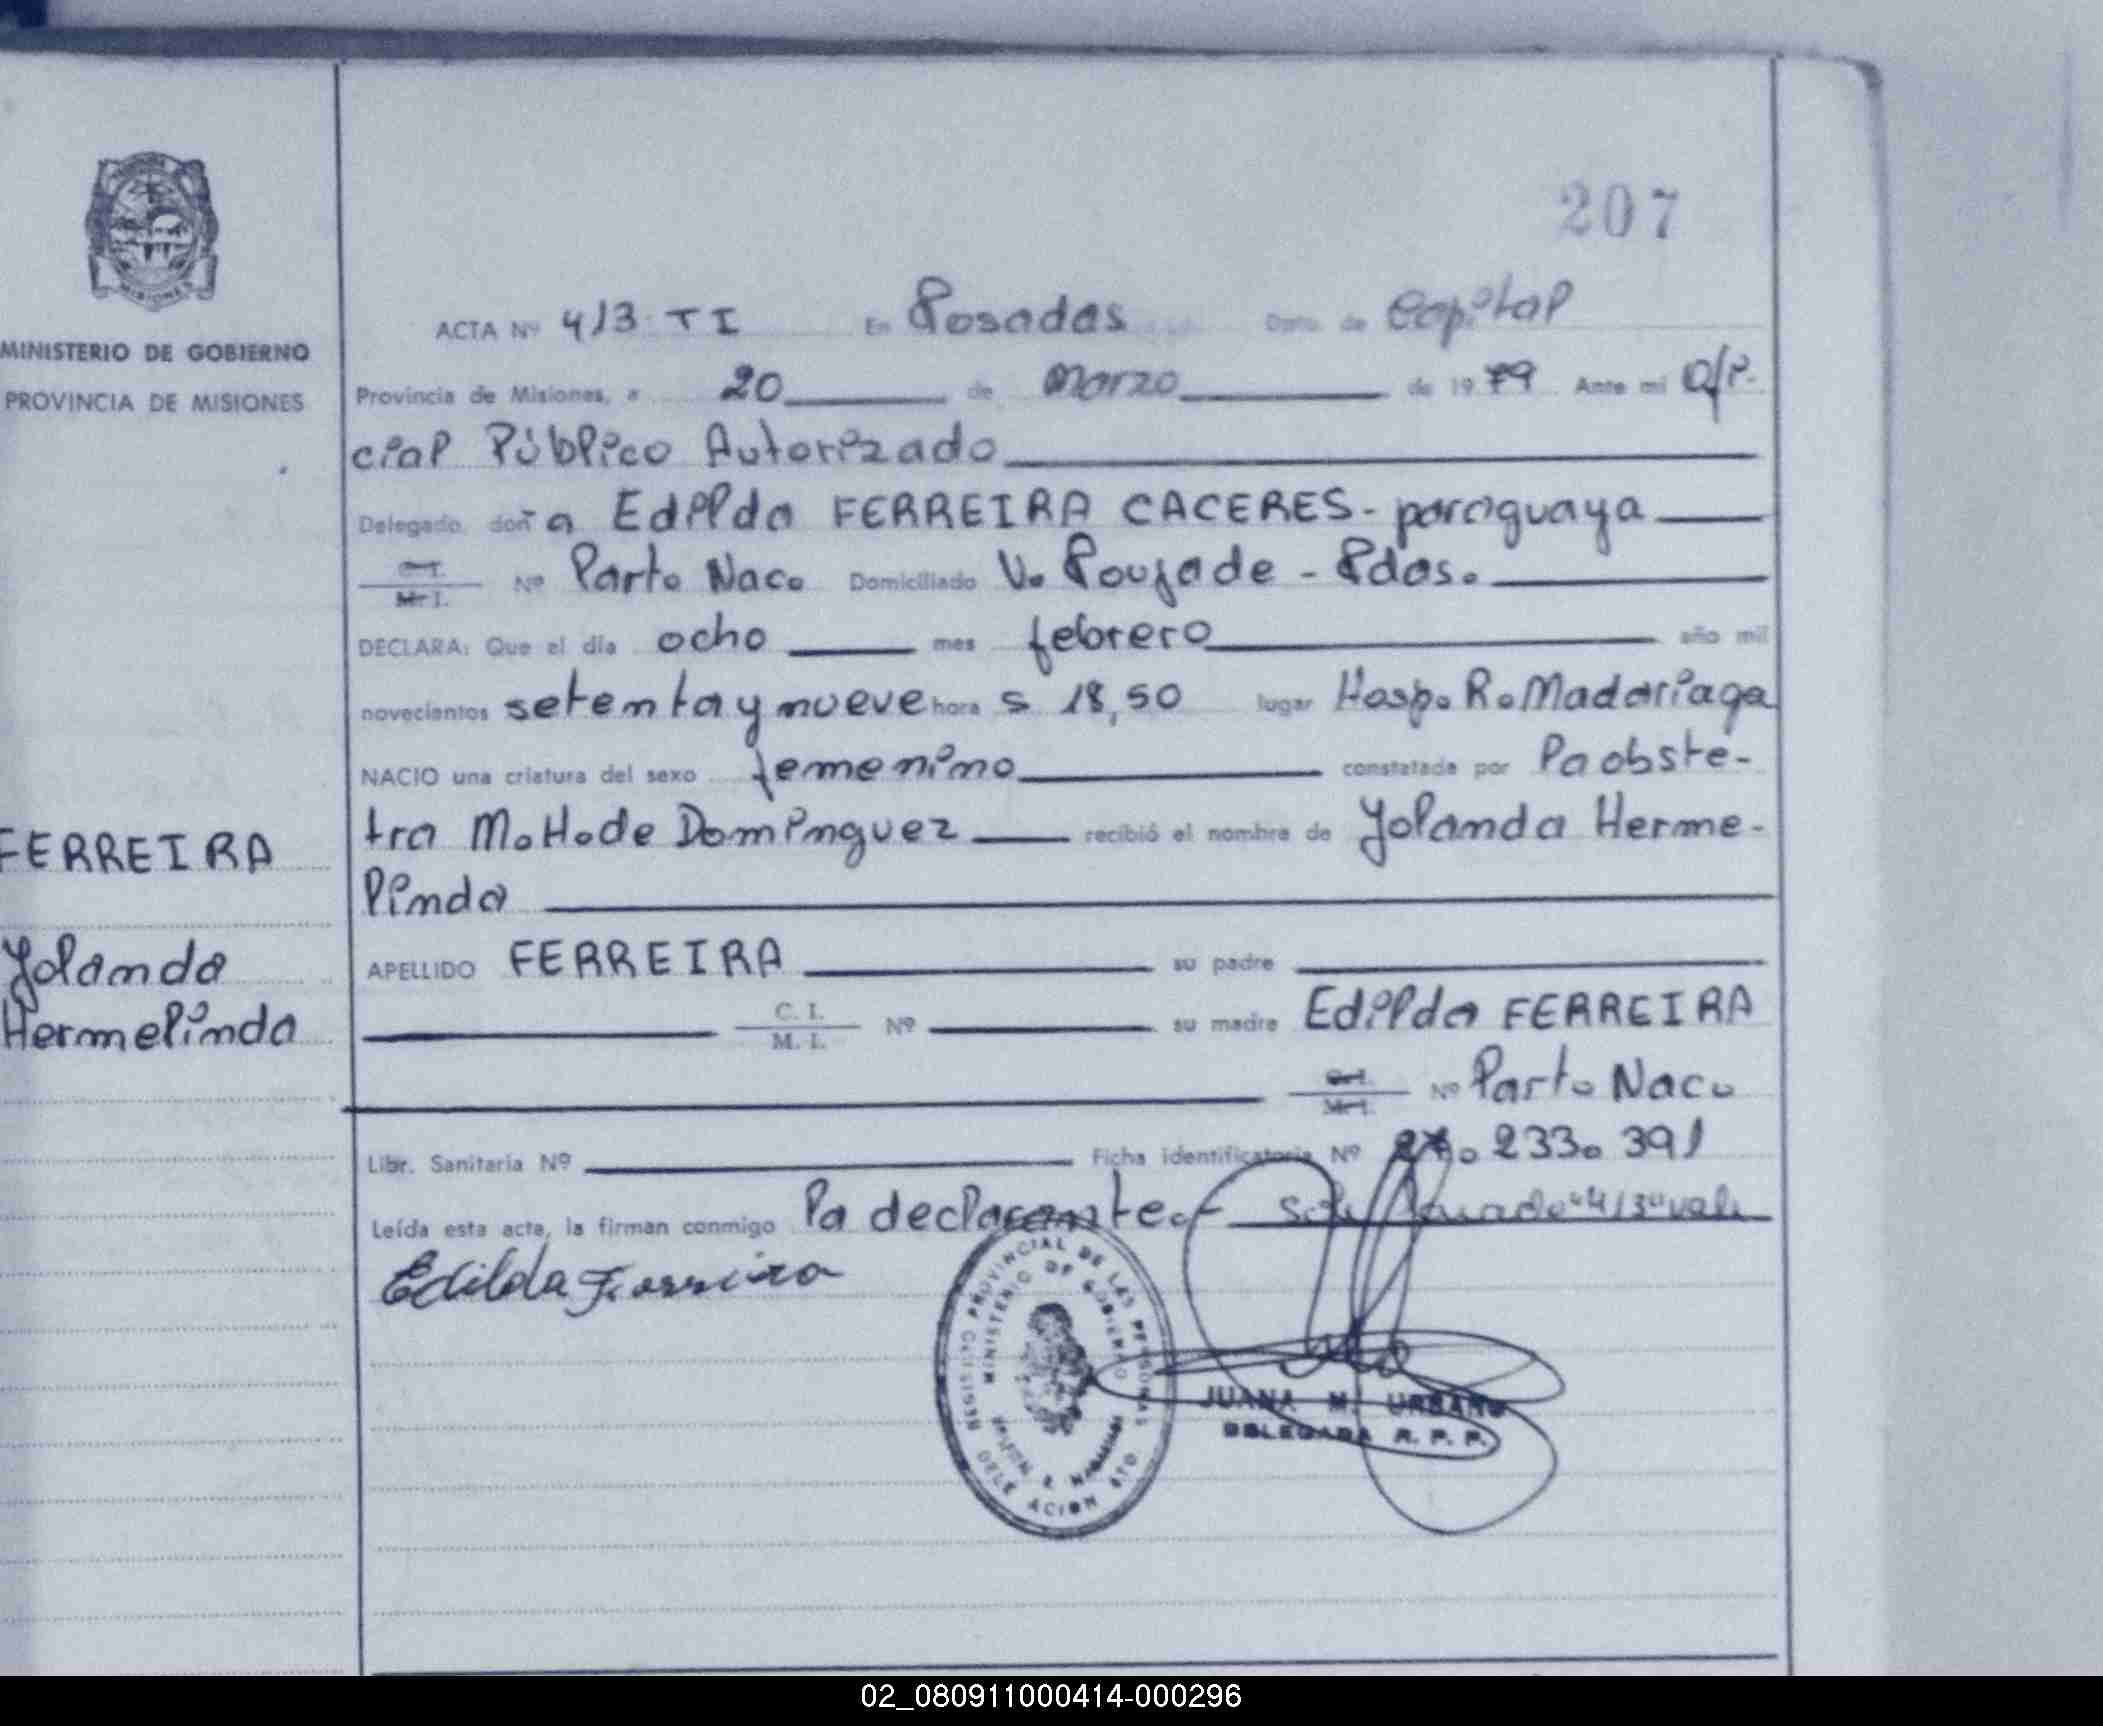 207
MISIONES
MINISTERIO DE GOBIERNO
PROVINCIA DE MISIONES
ACTA Nº 413 TI En Posadas Dpto. de Capital
Provincia de Misiones, a 20 de Marzo de 1979 Ante mi Ofi-
cial Público Autorizado
Delegado, doña Edilda FERREIRA CACERES - paraguaya
C.I. M.I. Nº Parto Nac. Domiciliado V. Poujade - Pdas.
DECLARA: Que el día ocho mes febrero año mil
novecientos setenta y nueve hora s 18,50 lugar Hosp. R. Madariaga
NACIO una criatura del sexo femenino constatada por la obste-
tra M. H. de Dominguez recibió el nombre de Yolanda Herme-
linda
APELLIDO FERREIRA su padre
C. I. M. I. Nº su madre Edilda FERREIRA
C.I. M.I. Nº Parto Nac.
Libr. Sanitaria Nº Ficha identificatoria Nº 27.233.391
Leída esta acta, la firman conmigo la declarante.- "413" vale
FERREIRA
Yolanda
Hermelinda
Edilda Ferreira
REGISTRO PROVINCIAL DE LAS PERSONAS
MINISTERIO DE GOBIERNO
DELEGACION
JUANA M. URBANO
DELEGADA R. P. P.
02_080911000414-000296